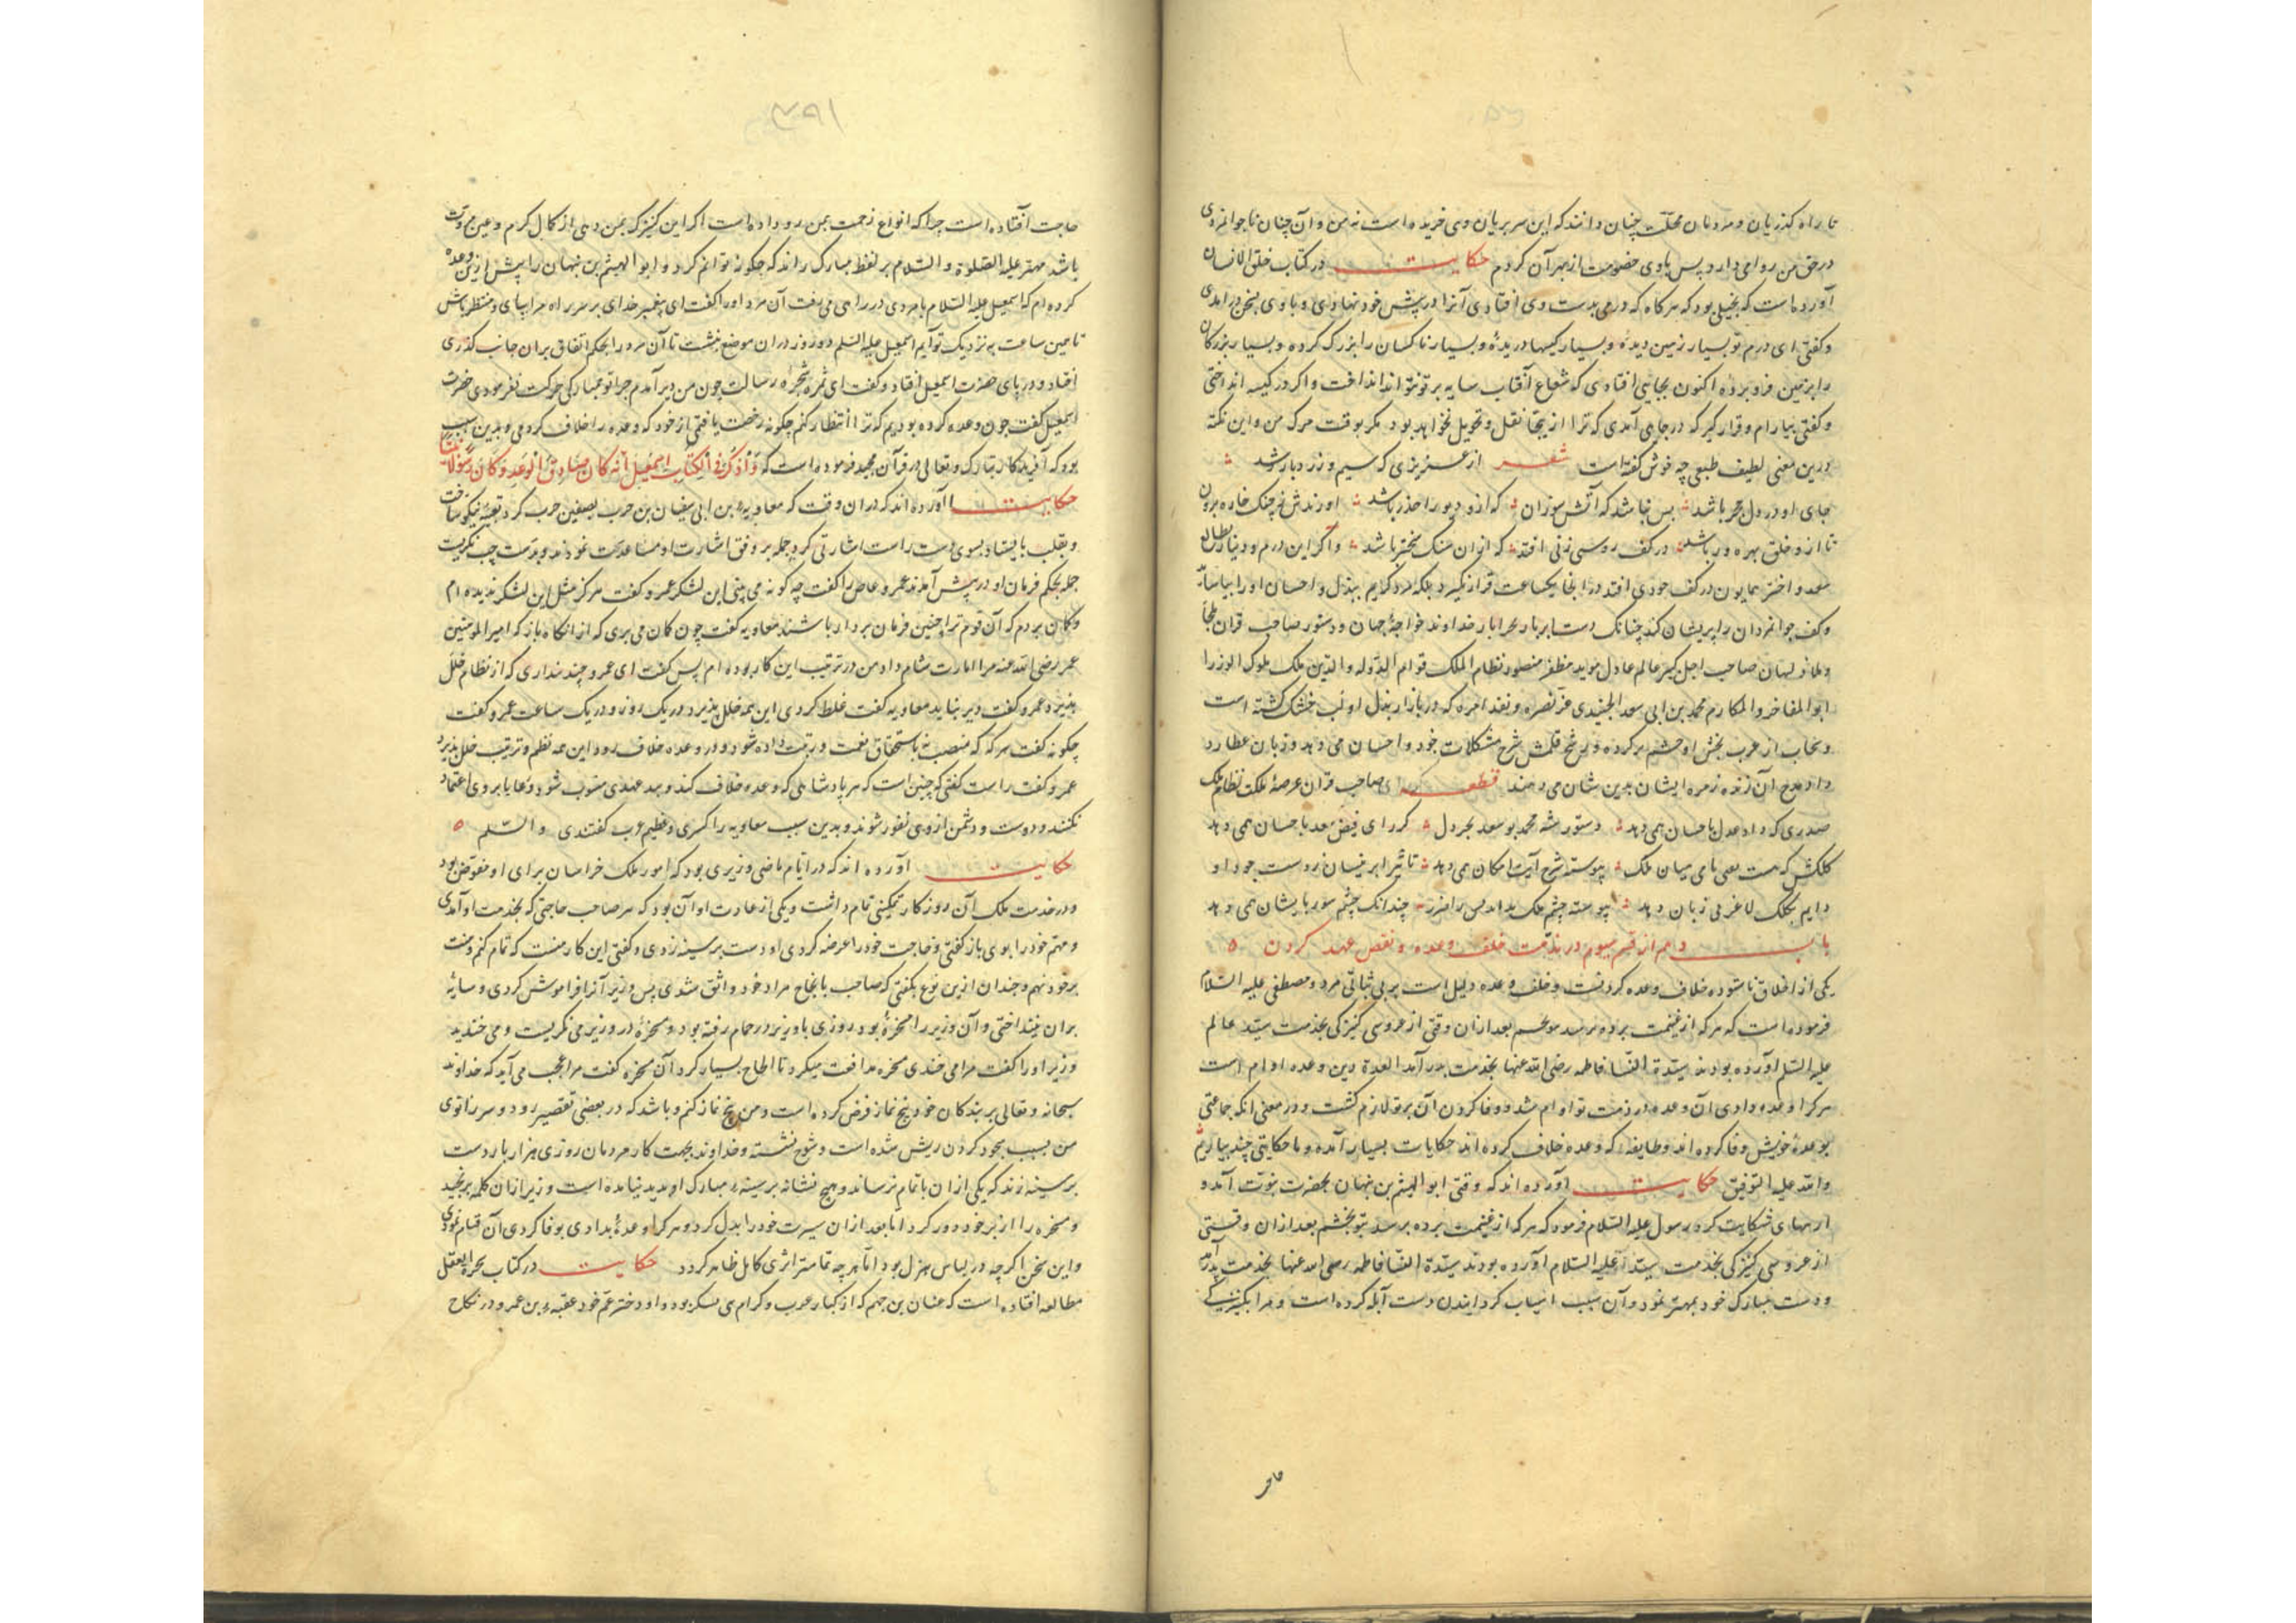 تا راه کذریان و مردمان محلّت چنان دانند که این سر بریان وی خریده است نه من و آن چنان ناجوانمردی
در حق من روا می دارد پس باوی خصومت از بهر آن کردم حکایت در کتاب خلق الانسان
آورده است که بخیلی بود که هرکاه که درمی بدست وی افتادی آنرا در پیش خود نهادی و باوی بسخن درامدی
و کفتی ای درم تو بسیار زمین دیدهٔ و بسیار کیسها دریدهٔ و بسیار ناکسان را بزرک کرده و بسیار بزرکان
را بزمین فرو برده اکنون بجایی افتادی که شعاع آفتاب سایه بر تو نتواند انداخت و اکر در کیسه انداختی
و کفتی بیارام و قرار کیر که در جایی آمدی که ترا از ینجا نقل و تحویل نخواهد بود مکر بوقت مرک من و این نکته
درین معنی لطیف طبعی چه خوش کفته است شعر از عزیزی که سیم و زر دارد
جای او در دل حجر باشد بس نباشد که آتش سوزان که ازو دیو را حذر باشد اورندش نه چنک خاره برون
تا ازو خلق بهره ور باشد در کف روسی زنی افتد که ازان سنک بخبر باشد و اکر این درم و دینار بطالع
سعد و اختر همایون در کف جودی افتد در انجا یکساعت قرار نکیرد بلکه مرد کریم ببذل و احسان او را بیاساید
و کف جوانمردان را پریشان کند چنانک دست ابربار بحر ایار خداوند خواجهٔ جهان و دستور صاحب قران ملجأ
و ملاذ لهفان صاحب اجل کبیر عالم عادل موید مظفر منصور نظام الملک قوام الدّوله و الدّین ملک ملوک الوزرا
ابو المفاخر و المکارم محمد بن ابی سعد الجنیدی عزّ نصره و نفذ امره که در بازار بذل او لب خشک کشته است
و سحاب از عرب بخش او چشم بر کرده و رشح قلمش شرح مشکلات خود و احسان می دهد و زبان عطارد
داد مدح آن زنده زمره ایشان بدین نشان می دهند قطعه ای صاحب قران عرصهٔ ملکت نظام ملک
صدری که داد عدل باحسان همی دهد دستور شه محمد بو سعد بحر دل کز رای فیض سعد باحسان همی دهد
کلکش که هست معی نامی میان ملک پیوسته شرح آیت امکان همی دهد تاثیر ابر نیسان ز دست جود او
دایم بکلک لاغر بی زبان دهد پیوسته چشم ملک بدادس رافزر چندانک چشم سور بایشان همی دهد
باب دهم از قسم سیوم در مذمت خلف وعده و نقض عهد کردن
یکی از اخلاق ناستوده خلاف وعده کردنست و خلف وعده دلیل است بر بی ثباتی مرد و مصطفی علیه السّلام
فرموده است که هر که از غنیمت برده برسد مو بخسم بعد ازان وقتی از عروسی کنیزکی بخدمت سیّد عالم
علیه السّلم آورده بودند سیّدة النّسا فاطمه رضی الله عنها بخدمت پدر آمد العدة دین وعده اوام است
هر کرا وعده دادی آن وعده در ذمت تو اوام شد و وفا کردن آن بر تو لازم کشت و در معنی انکه جماعتی
بوعدهٔ خویش وفا کرده اند و طایفهٔ که وعده خلاف کرده اند حکایات بسیار آمده و ما حکایتی چند بیاریم
والله علیه التوفیق حکایت آورده اند که وقتی ابو الهیثم بن نبهان بحضرت نبوّت آمد و
از بهای شکایت کرد رسول علیه السّلام فرمود که هر که از غنیمت برده برسد بتو بخشم بعد ازان وقتی
از عروسی کنیزکی بخدمت سیّد علیه السّلام آورده بودند سیّدة النّسا فاطمه رضی الله عنها بخدمت پدر آمد
و دست مبارک خود بمهتر نمود و آن سبب اسیاب کردانیدن دست آبله کرده است و مرا بکنیزکی
حاجت
۳۹۱
حاجت آفتاده است چرا که انواع زحمت بمن رو داده است اکر این کنیزک بمن دهی از کمال کرم و عین مروّت
باشد مهتر علیه الصّلوة و السّلام بر لفظ مبارک راند که چکونه توانم کرد و ابو الهیثم بن نبهان را پیش ازین وعده
کرده ام که اسمعیل علیه السّلام با مردی در راهی می رفت آن مرد او را کفت ای پیغمبر خدای بر سر راه مرا بپای و منتظر باش
تا همین ساعت به نزدیک تو آیم اسمعیل علیه السّلم دو روز دران موضع بنشست تا آن مرد را بحکم اتفاق بران جانب کذری
افتاد و در پای حضرت اسمعیل افتاد و کفت ای ثمرهٔ شجرهٔ رسالت چون من دیر آمدم چرا تو بمبارکی حرکت نفرمودی حضرت
اسمعیل کفت چون وعده کرده بودیم که ترا انتظار کنم چکونه رخصت یافتمی از خود که وعده را خلاف کردمی و بدین سبب
بود که آفریدکار تبارک و تعالی در قرآن مجید فرموده است که وَاذْكُرْ فِي الْكِتَابِ اِسْمٰعِيلَ اِنَّهُ كَانَ صَادِقَ الْوَعْدِ وَكَانَ رَسُولًا نَبِيًّا
حکایت آورده اند که دران وقت که معاویه بن ابی سفیان بن حرب بصفین حرب کرد تعبیه نیکو ساخت
و بقلب بایستاد بسوی دست راست اشارتی کرد جمله بر وفق اشارت او مساعدت نمودند و بدست چپ نکریست
جمله بحکم فرمان او در پیش آمدند عمرو عاص را کفت چه کونه می بینی این لشکر عمرو کفت هرکز مثل این لشکر ندیده ام
و کمان بردم که آن قوم ترا چنین فرمان بردار باشند معاویه کفت چون کمان می بری که از انکاه باز که امیر المومنین
عمر رضی الله عنه مرا امارت شام داد من در ترتیب این کار بوده ام پس کفت ای عمرو چند پنداری که از نظام خلل
پذیرد عمرو کفت دیر بباید معاویه کفت غلط کردی این همه خلل پذیرد در یک روز و در یک ساعت عمرو کفت
چکونه کفت هر که که منصب نه باستحقاق نعمت و رتبت داده شود و در وعده خلاف رود این همه نظم و ترتیب خلل پذیرد
عمرو کفت راست کفتی که چنین است که هر پادشاهی که وعده خلاف کند و ببد عهدی منسوب شود رعایا بر وی اعتماد
نکنند و دوست و دشمن از وی نفور شوند و بدین سبب معاویه را کسری و عظیم عرب کفتندی و السّلم
حکایت آورده اند که در ایّام ماضی وزیری بود که امور ملک خراسان برای او مفوّض بود
و در خدمت ملک آن روزکار تمکینی تمام داشت و یکی از عادت او آن بود که هر صاحب حاجتی که بخدمت او آمدی
و مهم خود را بوی باز کفتی و حاجت خود را عرضه کردی او دست بر سینه زدی و کفتی این کار منست که تمام کنم و منت
بر خود نهم و چندان ازین نوع بکفتی که صاحب بانجاح مراد خود واثق شدی پس وزیر آنرا فراموش کردی و سایهٔ
بران نینداختی و آن وزیر را مسخرهٔ بود روزی با وزیر در حمام رفته بود و مسخرهٔ در وزیر می نکریست و می خندید
وزیر او را کفت مرا می خندی مسخره مدافعت میکرد تا الحاح بسیار کرد آن مسخره کفت مرا عجب می آید که خداوند
سبحانه و تعالی بر بندکان خود پنج نماز فرض کرده است و من پنج نماز کنم و باشد که در بعضی تقصیر رود و سر زانوی
من بسبب سجود کردن ریش شده است و شوخ نشسته و خداوند بجهت کار مردمان روزی هزار بار دست
بر سینه زند که یکی ازان باتمام نرساند و هیچ نشانه بر سینهٔ مبارک او پدید نیامده است وزیر ازان کلمه برنجید
و مسخره را از بر خود دور کرد اما بعد ازان سیرت خود را بدل کرد و هر کرا وعدهٔ بدادی بوفا کردی آن قیام نمودی
و این سخن اکرچه در لباس هزل بود امّا هر چه تمامتر اثری کامل ظاهر کردد حکایت در کتاب بحره العقل
مطالعه افتاده است که عنان بن جهم که از کبار عرب و کرام ی بود و او دختر عمّ خود عقبهٔ بن عمرو در نکاح